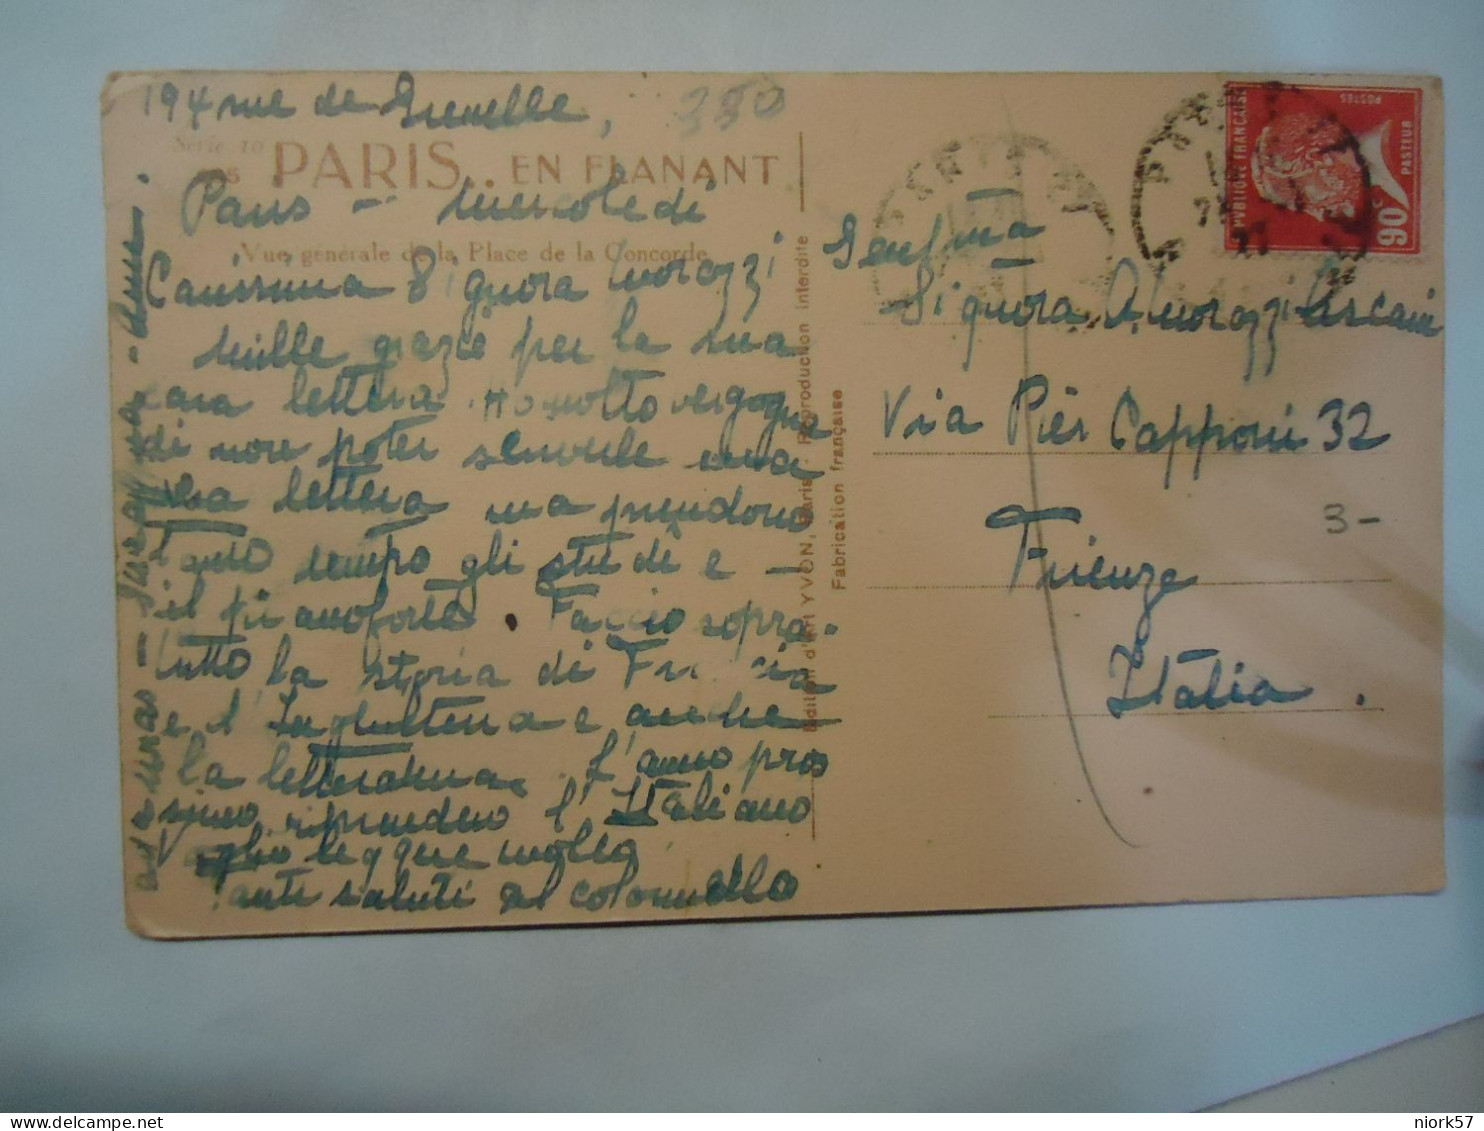 194 rue de Grenelle,
350
Série 10
PARIS.. EN FLANANT
Paris - Mercoledi
Vue générale de la Place de la Concorde
Carissima Signora Morozzi
Mille grazie per la sua
cara lettera. Ho molto vergogna
di non poter scriverle una
vera lettera ma prendono
tanto tempo gli studi e —
il pianoforte. Faccio sopra-
tutto la storia di Francia
e l'Inghilterra e anche
la letteratura. L'anno pros
simo riprendero l'Italiano
leggere molto
tanti saluti al colonnello
Edition d'art YVON, Paris - Reproduction interdite
Fabrication française
Gentma
Signora A. Morozzi Ascani
Via Pier Capponi 32
Firenze
Italia.
3-
RÉPUBLIQUE FRANÇAISE
POSTES
PASTEUR
90c
niork57